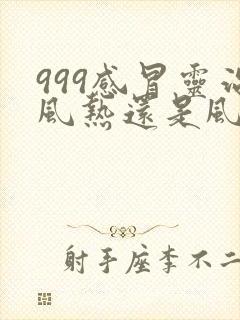 999感冒靈治
風熱還是風
射手座李不二